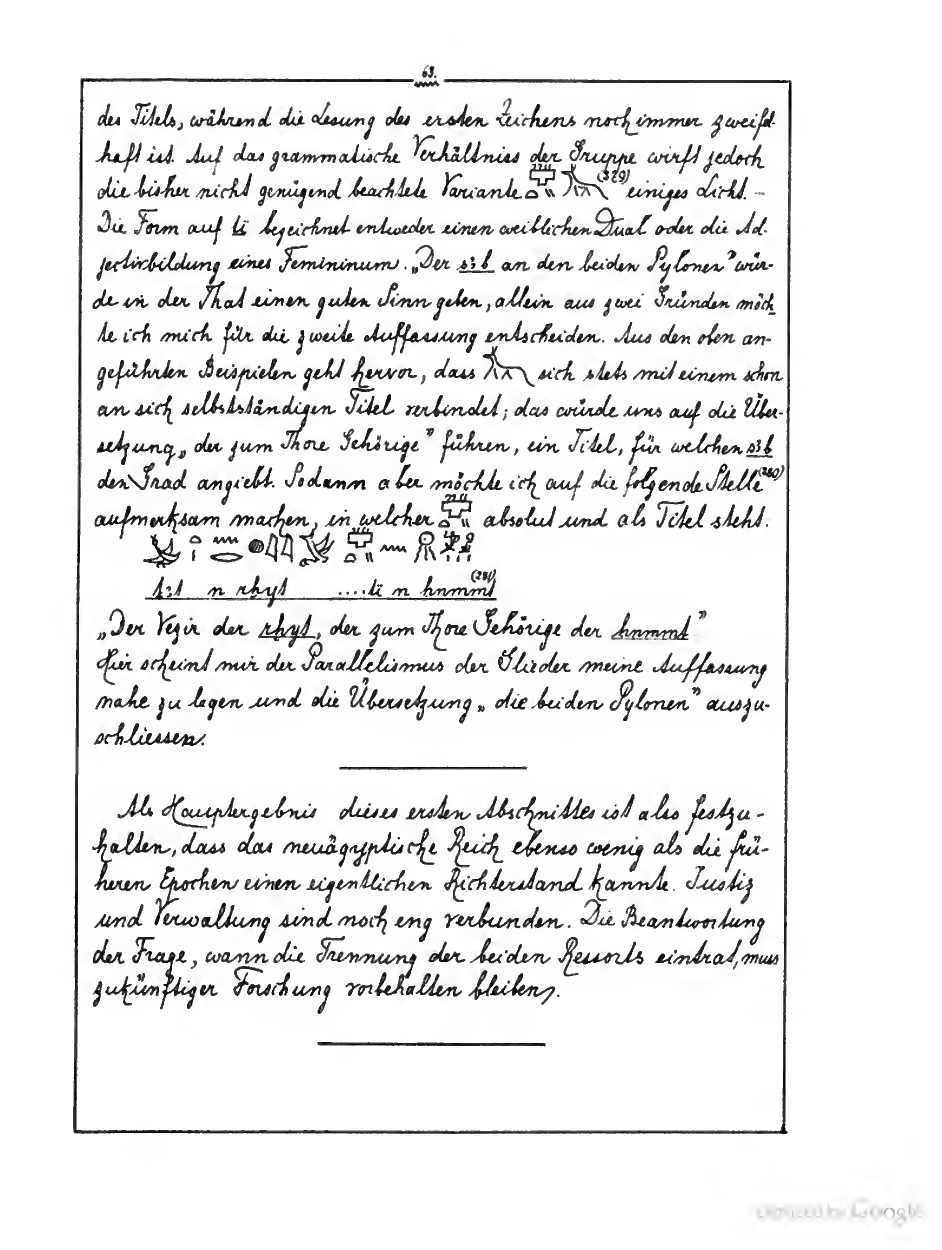 63.
des Titels, während die Lesung des ersten Zeichens noch immer zweifel-
haft ist. Auf das grammatische Verhältniss der Gruppe wirft jedoch
die bisher nicht genügend beachtete Variante (279) einiges Licht. –
Die Form auf ti bezeichnet entweder einen weiblichen Dual oder die Ad-
jectivbildung eines Femininum. „Der s3b an den beiden Pylonen" wür-
de in der That einen guten Sinn geben, allein aus zwei Gründen möch-
te ich mich für die zweite Auffassung entscheiden. Aus den oben an-
geführten Beispielen geht hervor, dass sich stets mit einem schon
an sich selbstständigen Titel verbindet; das würde uns auf die Über-
setzung „der zum Thore Gehörige" führen, ein Titel, für welchen s3b
den Grad angiebt. Sodann aber möchte ich auf die folgende Stelle (280)
aufmerksam machen, in welcher absolut und als Titel steht.
t3t n rhyt ....ti n hnmmt (281)
„Der Vezir der rhyt, der zum Thore Gehörige der hnmmt"
Hier scheint mir der Parallelismus der Glieder meine Auffassung
nahe zu legen und die Übersetzung „die beiden Pylonen" auszu-
schliessen.
Als Hauptergebnis dieses ersten Abschnittes ist also festzu-
halten, dass das neuägyptische Reich ebenso wenig als die frü-
heren Epochen einen eigentlichen Richterstand kannte. Justiz
und Verwaltung sind noch eng verbunden. Die Beantwortung
der Frage, wann die Trennung der beiden Ressorts eintrat, muss
zukünftiger Forschung vorbehalten bleiben.
Digitized by Google